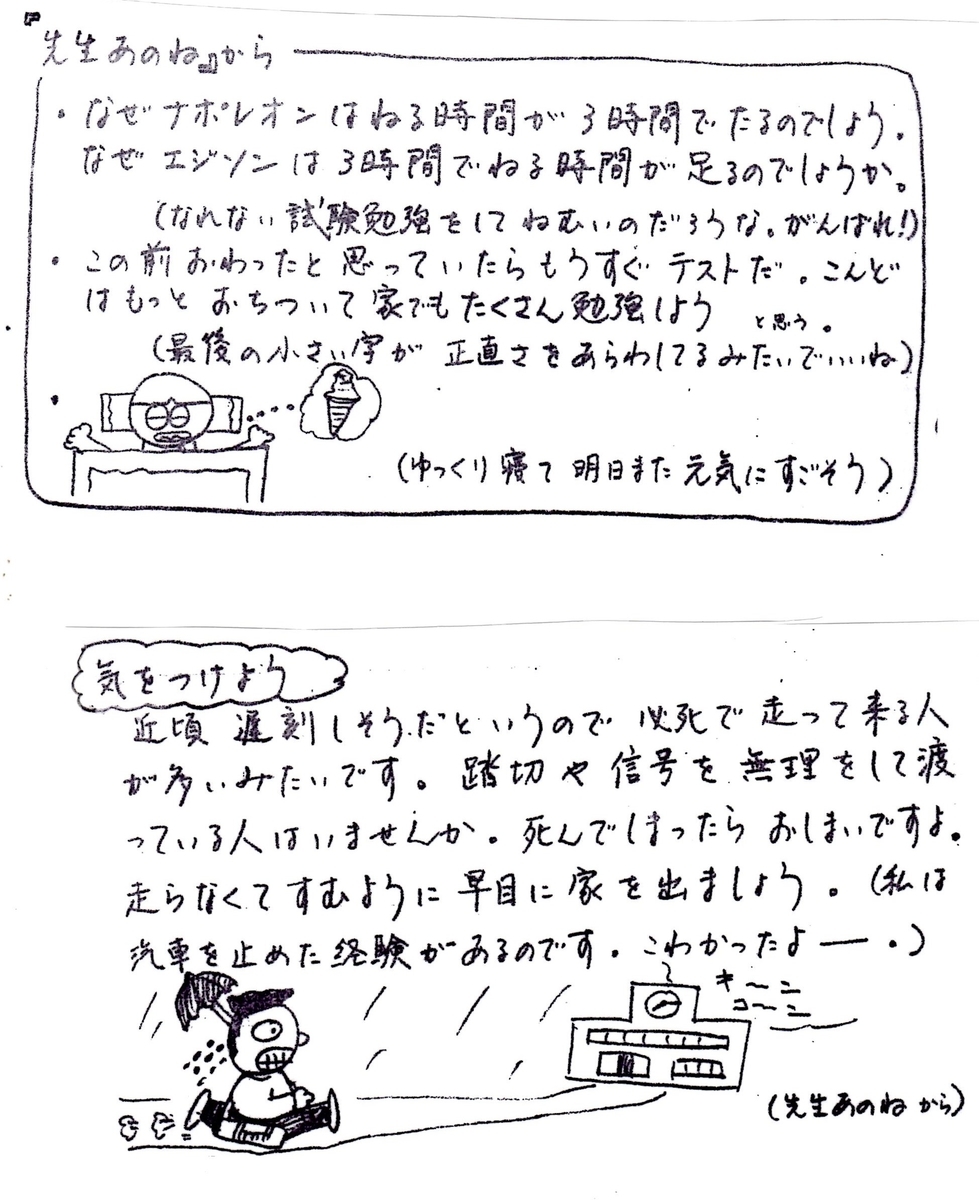 『先生あのね』から
・なぜナポレオンはねる時間が3時間でたるのでしょう。
なぜエジソンは3時間でねる時間が足るのでしょうか。
(なれない試験勉強をしてねむいのだろうな。がんばれ!)
・この前おわったと思っていたらもうすぐテストだ。こんど
はもっとおちついて家でもたくさん勉強しようと思う。
(最後の小さい字が正直さをあらわしてるみたいでいいね)
・
(ゆっくり寝て明日また元気にすごそう)
気をつけよう
近頃遅刻しそうだというので必死で走って来る人
が多いみたいです。踏切や信号を無理をして渡
っている人はいませんか。死んでしまったらおしまいですよ。
走らなくてすむように早目に家を出ましょう。(私は
汽車を止めた経験があるのです。こわかったよー.)
キーン
コーン
(先生あのねから)